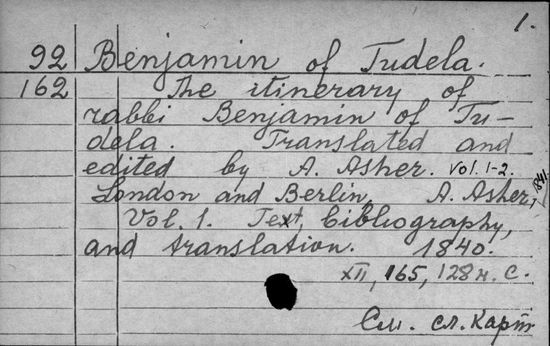 1.
92 Benjamin of Tudela.
162 The itinerary of
rabbi Benjamin of Tu-
dela. Translated and
edited by A. Asher. Vol. 1-2.
London and Berlin, A. Asher, 1841.
Vol. 1. Text, bibliography,
and translation. 1840.
XII, 165, 128 н. с.
См. сл. карт